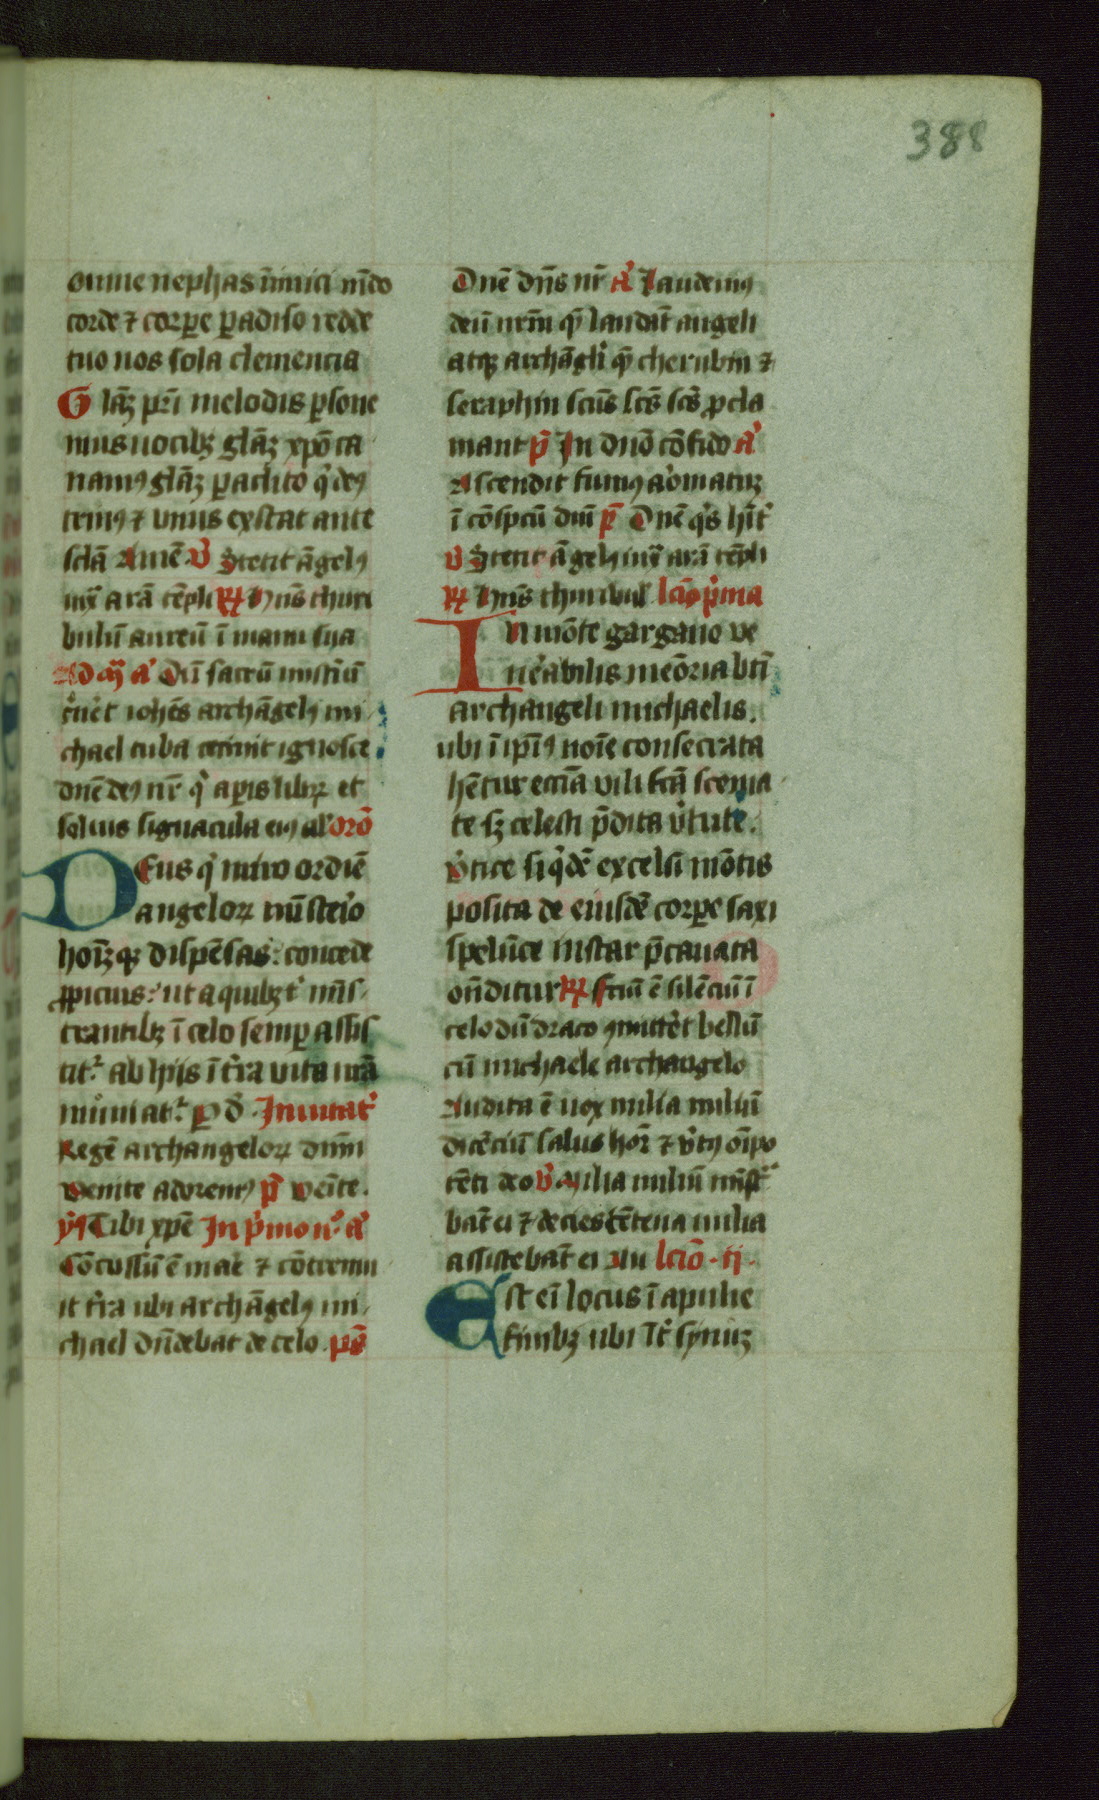 388
omne nephas inimici mūdo
corde ⁊ corꝑe ꝑadiso redde
tuo nos sola clemencia
Glāz pr̄i melodis ꝑsone
mus uocibꝫ glāz xpō ca
namꝰ glāz ꝑaclito q̇ deꝰ
trinꝰ ⁊ vnus exstat ante
sclā Amē. v̾ Stetit āgelꝰ
iux̄ arā tēpli ꝶ Hn̄s thuri
bulū aureū ī manu sua
Ad m̄ a̾ Dū sacrū mistīū
c̾net iohēs archāgelꝰ mi
chael tuba cecinit ignosce
dn̄e deꝰ nr̄ q̇ aꝑis librꝫ et
soluis signacula eiꝰ all̾ orō
Deus q̇ miro ordīe
angeloꝝ mīster̾io
hoīꝫqꝫ dispēsas: concede
ꝓpicius: ut a quibꝫ t̾ mīs
trantibꝫ ī celo semꝑ assis
tit̾: ab hijs ī t̾ra vita nr̄a
muniat̾: ꝑ d̄. Inuitat̾
Regē archangeloꝝ dn̄m
venite adoremꝰ p̄s̄ venīte.
ym̄ Tibi xpē In p̾mo n̾o a̾
Cōcussū ē mae ⁊ cōtremu
it t̾ra ubi archāgelꝰ mi
chael dn̄debat de celo. ps̄
Dn̄e dn̄s nr̄ a̾ Laudemꝰ
deū nr̄m qē laudāt angeli
atqꝫ archāgli qē cherubin ⁊
seraphin scūs scūs scūs ꝓcla
mant p̄s̄ In dn̄o cōfido a̾
Ascendit fumꝰ aromatuꝫ
ī cōspcū dnī p̄s̄ Dn̄e q̇s hīt̾
v̾ Stetit āgelꝰ iux̄ arā tēpli
ꝶ Hn̄s thuribul̾ lcīo p̾ma
In mōte gargano ve
ner̾abilis meōria bt̄i
archangeli michaelis.
ubi ī ipīꝰ noīe consecrata
hētur eccīa vili fcā scema
te sꝫ celesti p̄dita v̾tute.
v̾tice siq̇dē excelsi mōtis
posita de eiusdē corꝑe saxi
spelūce instar p̄cauata
on̄ditur ꝶ Fcīu ē silēciū ī
celo dū draco ꝯmittet bellū
cū michaele archangelo
Audita ē uox milia miliū
dicēciū salus hor̄ ⁊ v̾tꝰ oīpo
tēti deo v̾ Milia miliū mīst̾
bāt ei ⁊ decies cētena milia
assistebāt ei Au lcīo. ij.
Est eī locus ī apulie
finibꝫ ubi It̾ synuꝫ